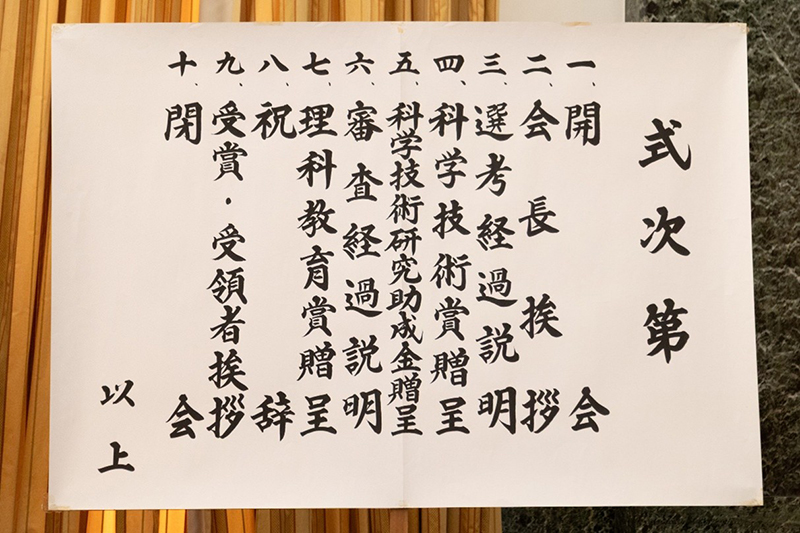 式次第
一、開会
二、会長挨拶
三、選考経過説明
四、科学技術賞贈呈
五、科学技術研究助成金贈呈
六、審査経過説明
七、理科教育賞贈呈
八、祝辞
九、受賞・受領者挨拶
十、閉会
以上